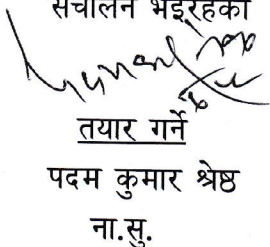 संचालन भईरहेको
तयार गर्ने
पदम कुमार श्रेष्ठ
ना.सु.